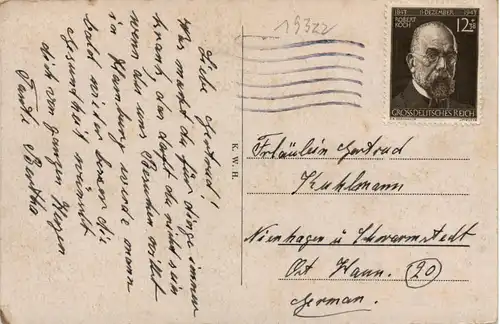 Liebe Gertrud!
Was machst du für dinge immer
krank, das darfst du nicht sein
wenn du uns Besuchen willst
in Hamburg werde man
bald wieder besser die
Gesundheit wünscht
dich von ganzen Herzen
Tante Bertha
19322
K. W. H.
1843 11. DEZEMBER 1943
ROBERT
KOCH
12+38
GROSSDEUTSCHES REICH
Fräulein Gertrud
Kuhlmann
Nienhagen ü Schwarmstedt
Ost Hann. (20)
German.